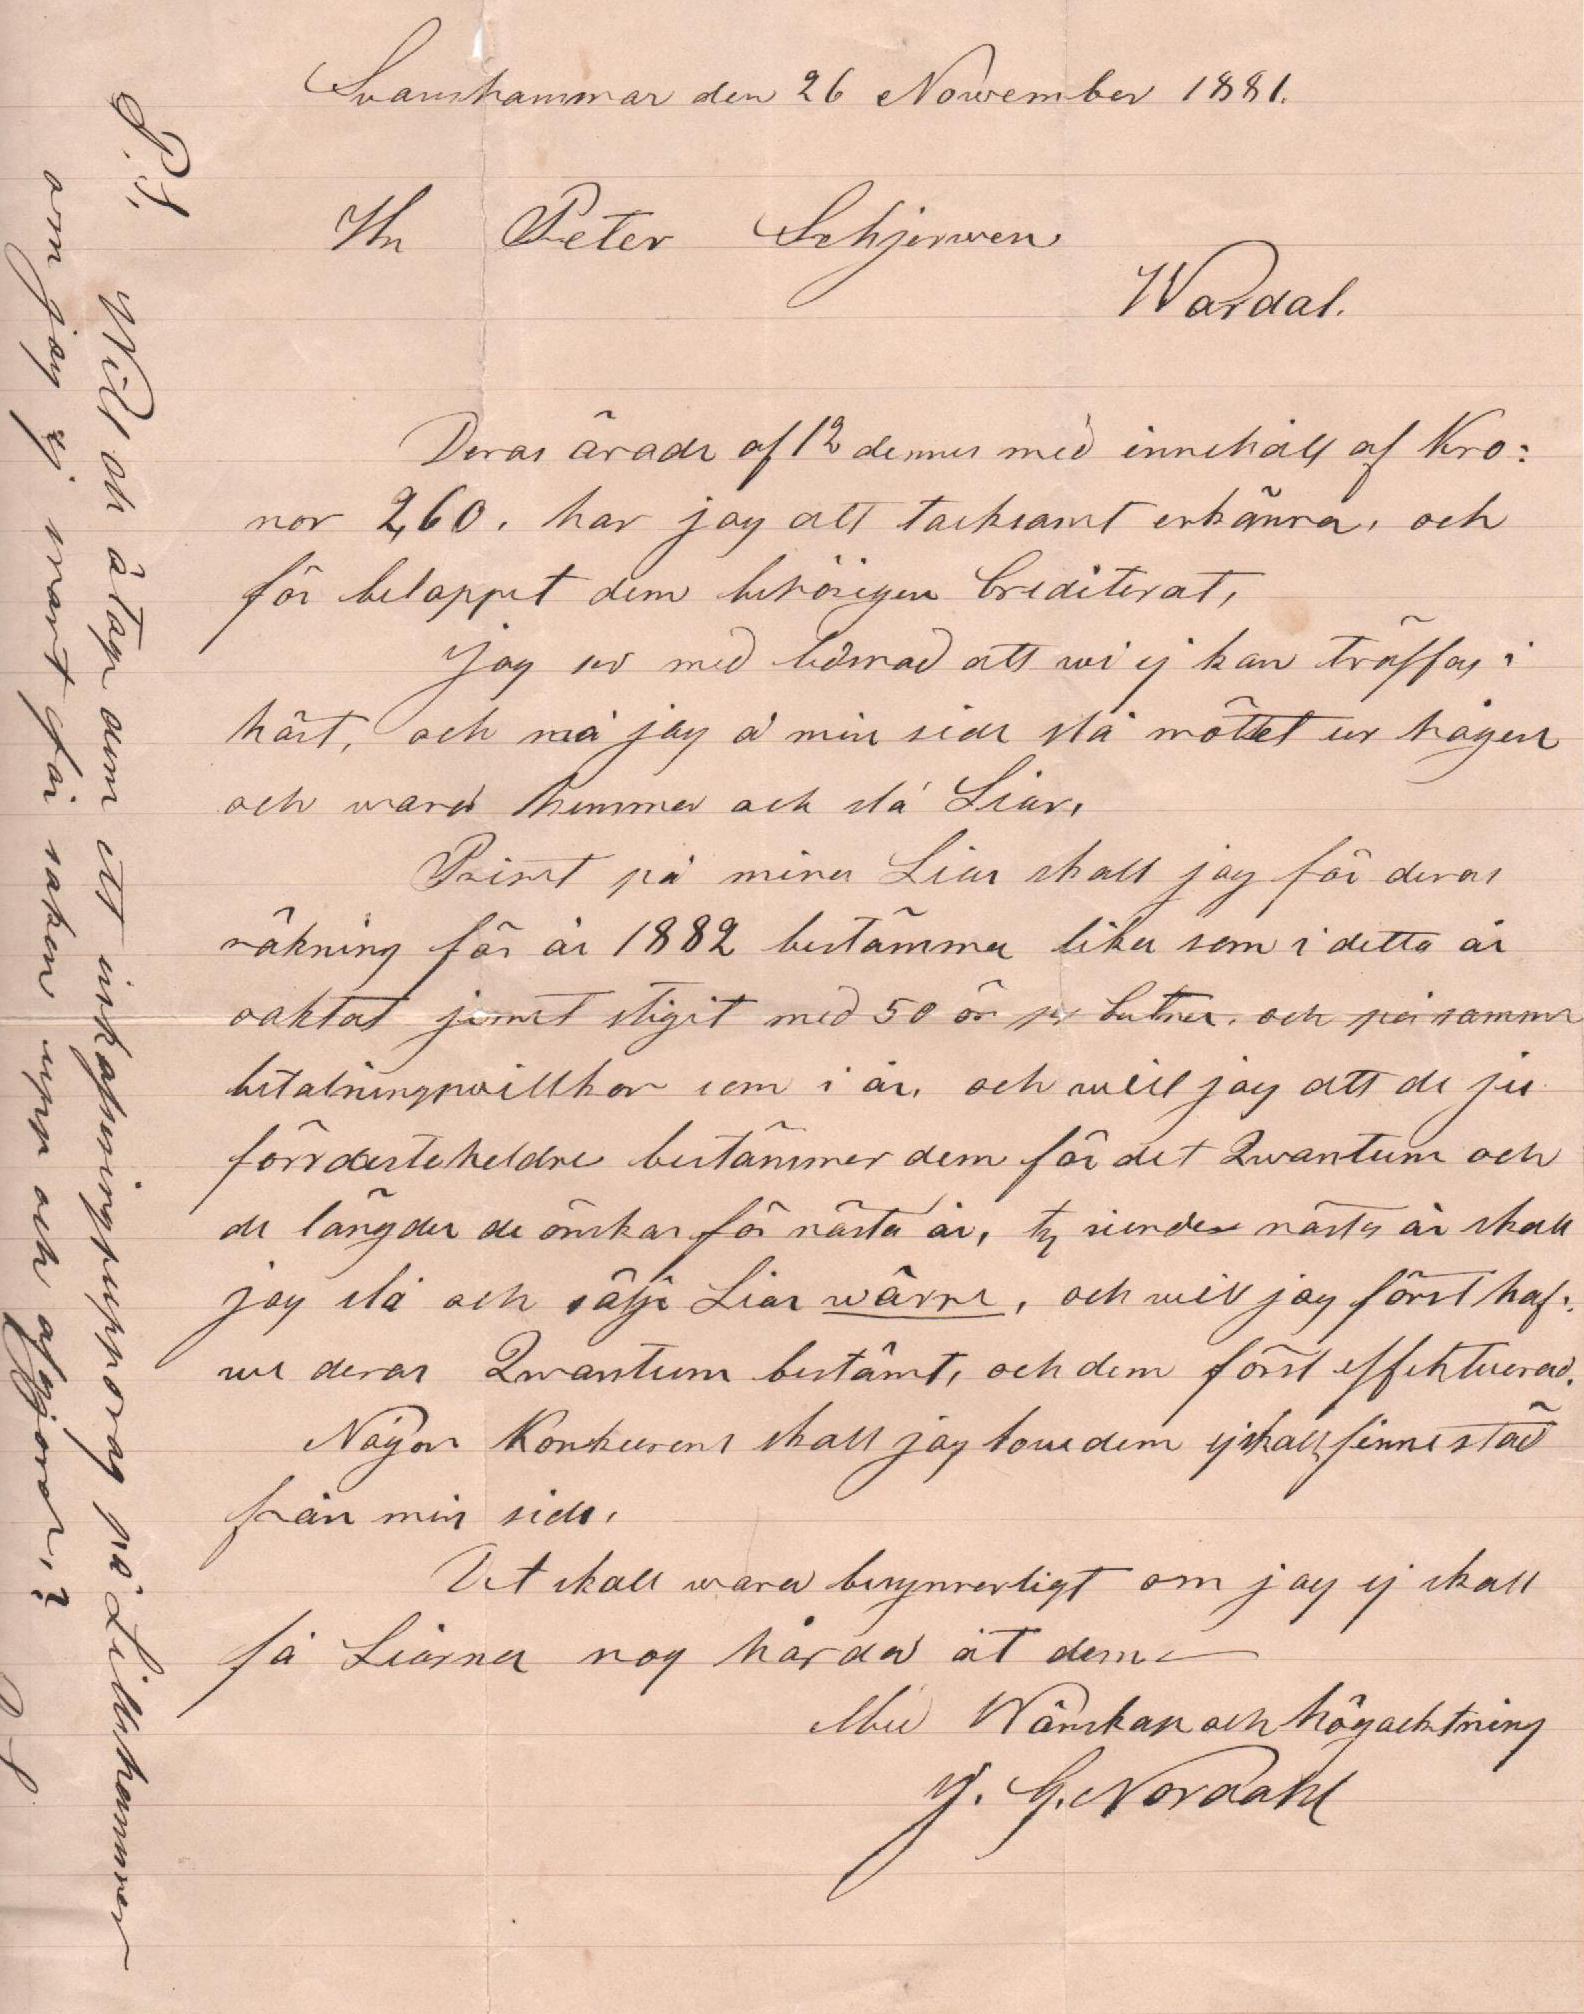 Svanshammar den 26 November 1881.
Hr Peter Schjerwen
Wardal.
Deras ärade af 12 dennes med innehåll af Kro:
nor 260. har jag att tacksamt erkänna, och
för beloppet dem behörigen Crediterat,
Jag ser med ledsnad att wi ej kan träffas i
häst, och må jag å min sida slå mötet ur hågen
och wara hemma och slå Liar,
Priset på mina Liar skall jag för deras
räkning för år 1882 bestämma lika som i detta år
oaktat jernet stigit med 50 ör pr Cutner. och på samma
betalningswillkor som i år, och will jag att de ju
förr desteheldre bestämmer dem för det Qwantum och
de längder de önskar för nästa år, ty nästa år skall
jag slå och sälje Liar wärre, och will jag först haf:
wa deras Qwantum bestämt, och dem först effektuerad.
Någon Konkurens skall jag lowa dem ej skall finna städ
från min sida,
Det skall wara besynnerligt om jag ej skall
få Liarna nog hårda åt dem
Med Wänskap och högachtning
J. G. Nordahl
P.S. Will de åtaga dem ett inkasseringsuppdrag på Lillehammer
om jag ej snart får saken upp och afgjord,?